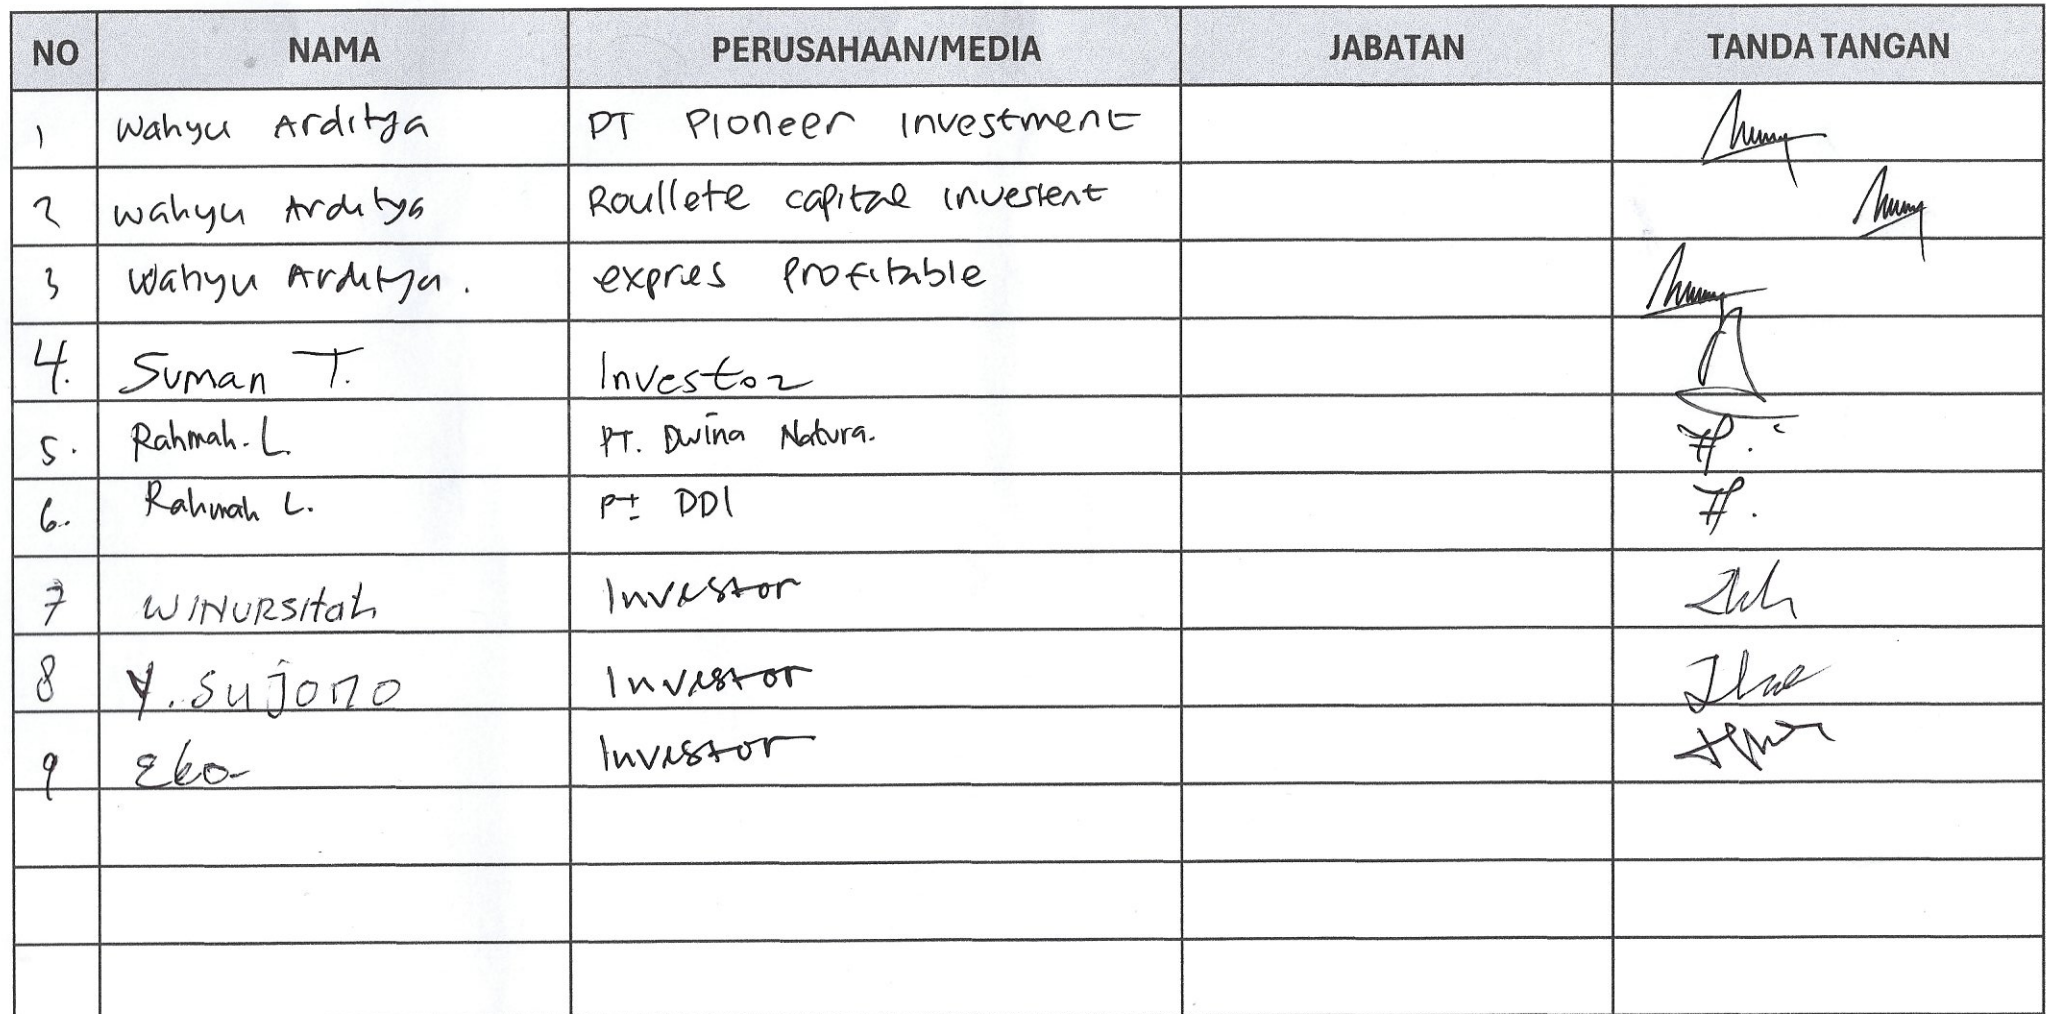 NO NAMA PERUSAHAAN/MEDIA JABATAN TANDA TANGAN
1 Wahyu Arditya PT Pioneer Investment
2 Wahyu Arditya Roullete capital investent
3 Wahyu Arditya. expres Profitable
4. Suman T. Investor
5. Rahmah. L. PT. Dwina Natura.
6. Rahmah L. Pt DDI
7 WINURSITAH Investor
8 Y. Sujono Investor
9 Eko Investor